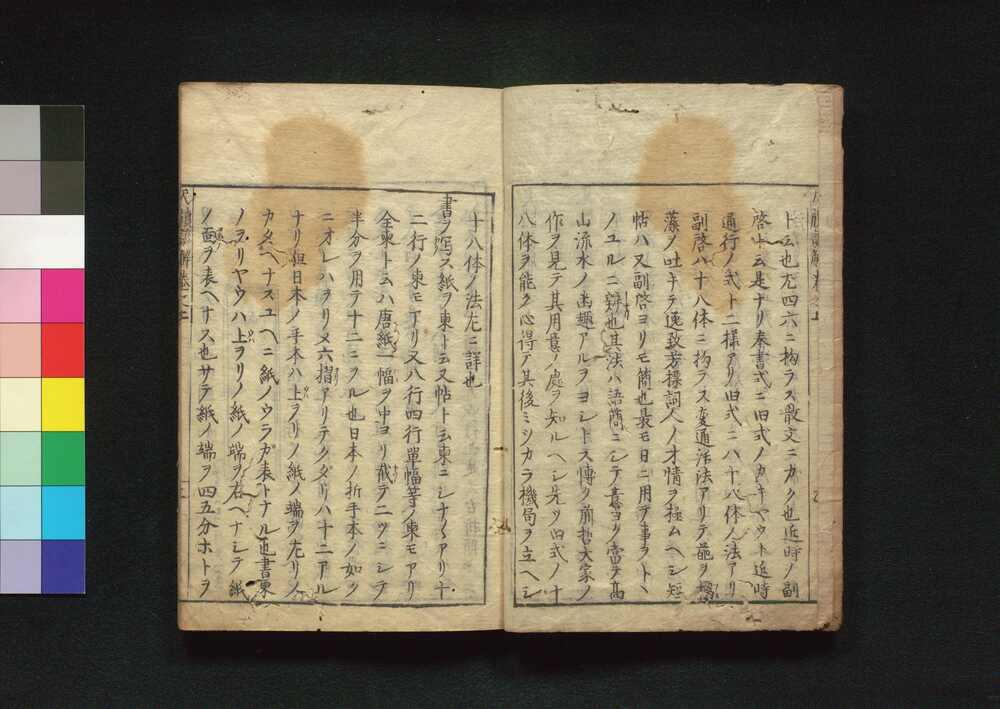 ト云也尤四六ニ拘ラス散文ニカク也近時ノ副
啓ト云是ナリ奏書式ニ旧式ノカキヤウト近時
通行ノ式ト二様アリ旧式ニハ十八体ノ法アリ
副啓ハ十八体ニ拘ラス変通活法アリテ藻ヲ
藻ノ吐キテ逸致芳標詞人ノ才情ヲ極ムヘシ短
帖ハ又副啓ヨリモ簡也最モ日ニ用ヲ事ヲト
ノユルニ辨也其法ハ語簡ニシテ意ヨリ当ヲ高
山流水ノ幽趣アルヲヨシトス博ク前哲大家ノ
作ヲ見テ其用意ノ處ヲ知ルヘシ先ツ旧式ノ十
八体ヲ能ク心得テ其後ミツカラ機局ヲ立ヘシ
十八体ノ法左ニ詳也
書ヲ寫ス紙ヲ柬ト云又帖ト云柬ニシナ〱アリ十
二行ノ柬モアリ又八行四行單幅等ノ柬モアリ
全柬ト云ハ唐紙一幅ヲ中ヨリ裁テ二ツニシテ
半分ヲ用テ十二ニヲル也日本ノ折手本ノ如ク
ニオレハヲリメ六摺アリテクダリハ十二アル
ナリ但日本ノ手本ハ上ヲリノ紙ノ端ヲ左リノ
カタヘナスユヘニ紙ノウラガ表トナル也書柬
ノヲリヤウハ上ヲリノ紙ノ端ヲ右ヘナシテ紙
ノ面ヲ表ヘナス也サテ紙ノ端ヲ四五分ホトヲ